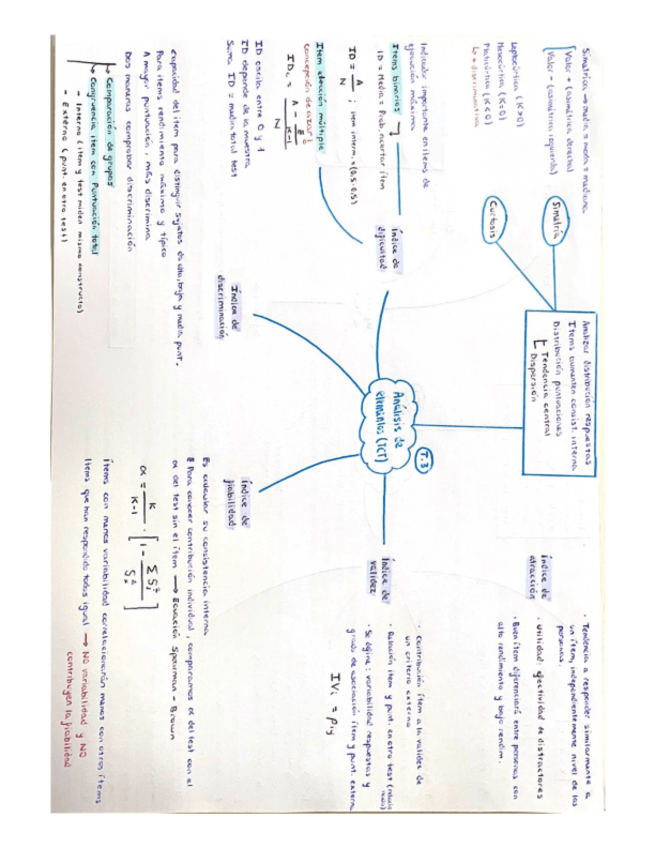 T.3
Análisis de
elementos (TCT)
Analizar distribución respuestas
Items aumenten consist. interna
Distribución puntuaciones
Tendencia central
Dispersión
Simetría
Curtosis
Simétrica → Media = moda = mediana
Valor - (asimétrica derecha)
Valor - (asimétrica izquierda)
Leptocúrtica (K>0)
Mesocúrtica (K=0)
Platicúrtica (K<0)
↳ + discriminativa
Índice de
dificultad
Indicador importante en items de
ejecución máxima
Items binarios
ID = Media = Prob. acertar ítem
ID = A / N ; item interm. ≈ (0,5-0,5)
Item elección múltiple
corrección de azar
IDc = A - E / K-1
N
ID oscila entre 0 y 1
ID depende de la muestra
Suma ID = media total test
Índice de
discriminación
Capacidad del item para distinguir sujetos de alta, baja y media punt.
Para items rendimiento máximo y típico
A mayor puntuación, más discrimina
Dos maneras comprobar discriminación
Comparación de grupos
Congruencia item con Puntuación total
- Interna (item y test miden mismo constructo)
- Externa (punt. en otro test)
Índice de
atracción
· Tendencia a responder similarmente a
un ítem, independientemente nivel de las
personas.
· Utilidad: efectividad de distractores
· Buen ítem diferenciará entre personas con
alto rendimiento y bajo rendim.
Índice de
validez
· Contribución ítem a la validez de
un criterio externo
· Relación item y punt. en otro test
· Se define: variabilidad respuestas y
grado de asociación ítem y punt. externa
IVi = ρiy
Índice de
fiabilidad
Es calcular su consistencia interna
Para conocer contribución individual, comparamos α del test con el
α del test sin el ítem → Ecuación Spearman - Brown
α = K / K-1 · [1 - ΣS²i / S²x]
Ítems con menos variabilidad correlacionarán menos con otros ítems
Ítems que han respondido todos igual → NO variabilidad y NO
contribuyen la fiabilidad